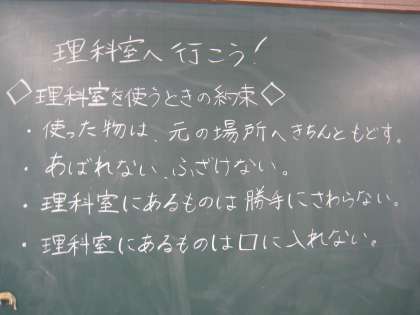 理科室へ行こう!
◇理科室を使うときの約束◇
・使った物は、元の場所へきちんともどす。
・あばれない、ふざけない。
・理科室にあるものは勝手にさわらない。
・理科室にあるものは口に入れない。